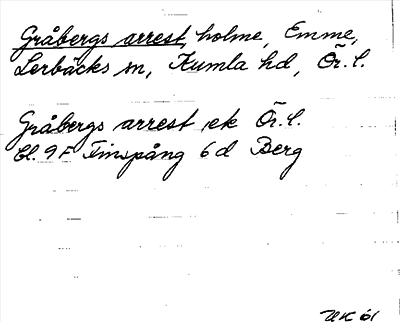 Gråbergs arrest, holme, Emme,
Lerbäcks sn, Kumla hd, Ör. l.
Gråbergs arrest ek Ör. l.
bl. 9F Finspång 6d Berg
61